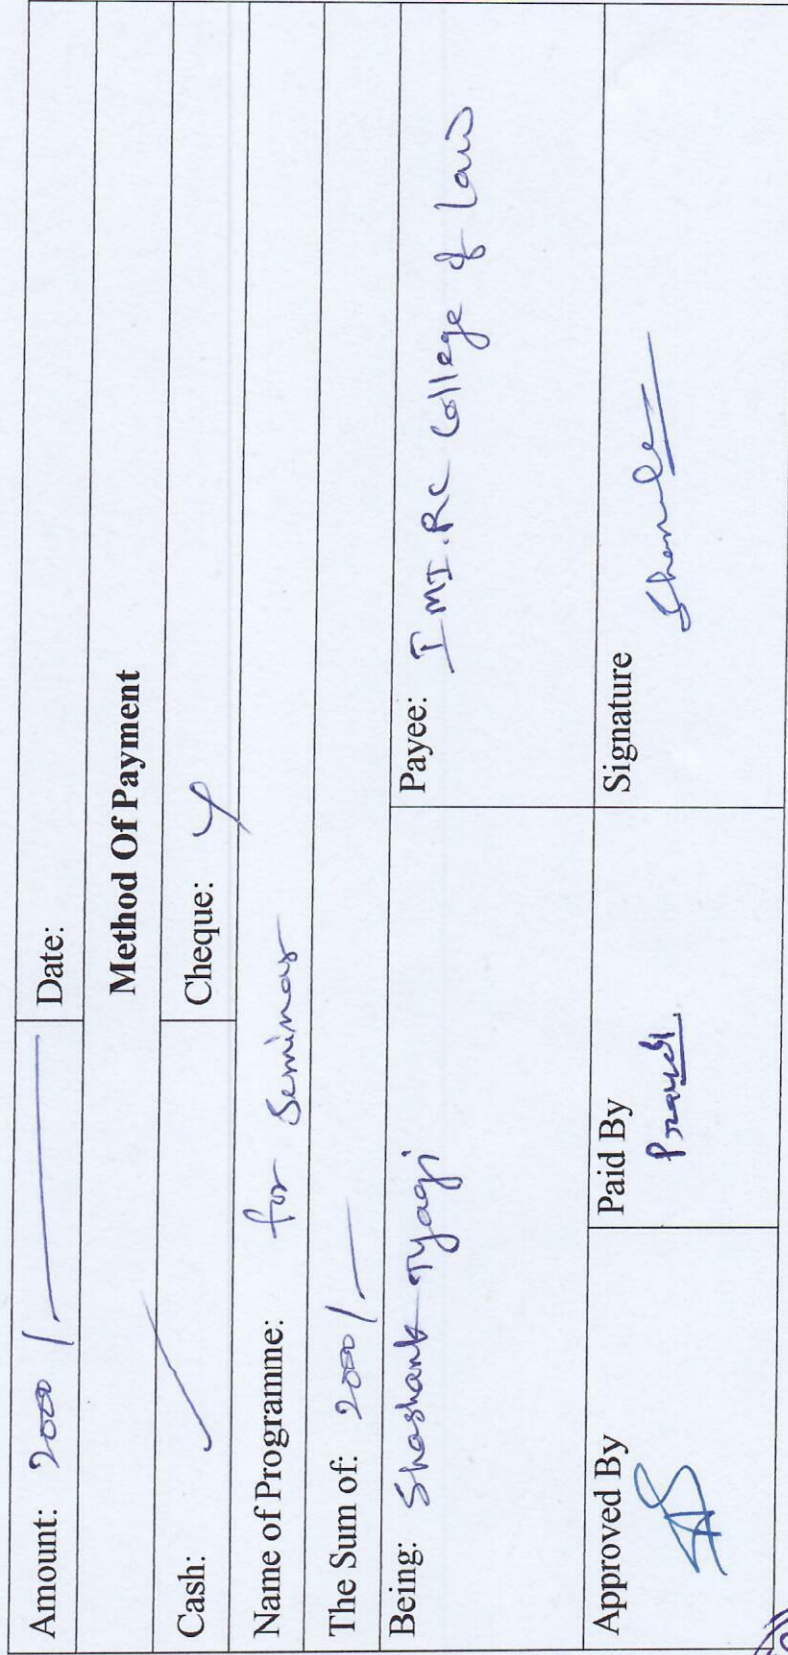 Amount: 2000/— Date:
Method Of Payment
Cash: ✓ Cheque:
Name of Programme: for Seminar
The Sum of: 2000/—
Being: Shashank Tyagi Payee: IMI.RC College of Law
Approved By Paid By Signature